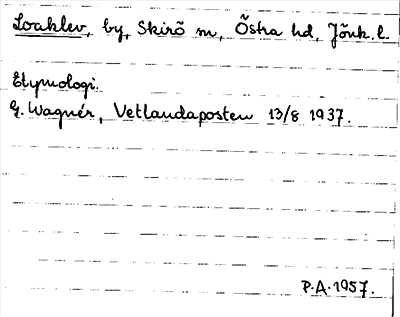 Loaklev, by, Skirö m, Östra hd, Jönk. l.
Etymologi.
G. Wagnér, Vetlandaposten 13/8 1937.
P.A. 1957.